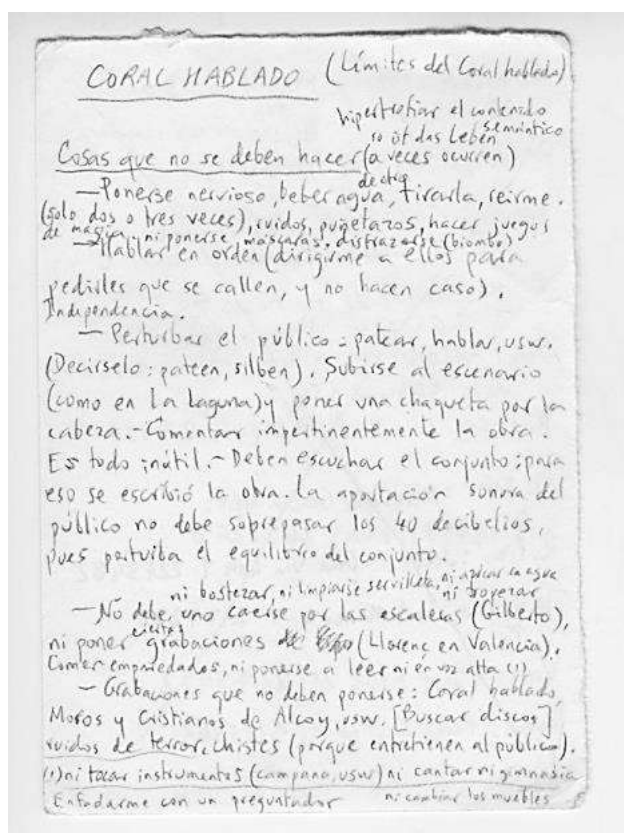 CORAL HABLADO (Límites del Coral hablado)
hipertrofiar el contenido
so ist das Leben semántico
Cosas que no se deben hacer (a veces ocurren)
—Ponerse nervioso, beber agua, tirarla, reirme.
de otro
(solo dos o tres veces), ruidos, puñetazos, hacer juegos
de magia, ni ponerse máscaras, disfrazarse (biombo)
—Hablar en orden (dirigirme a ellos para
pedirles que se callen, y no hacen caso).
Independencia.
— Perturbar el público: patear, hablar, usw.
(Decírselo: pateen, silben). Subirse al escenario
(como en La Laguna) y poner una chaqueta por la
cabeza.- Comentar impertinentemente la obra.
Es todo inútil.- Deben escuchar el conjunto; para
eso se escribió la obra. La aportación sonora del
público no debe sobrepasar los 40 decibelios,
pues perturba el equilibrio del conjunto.
ni bostezar, ni limpiarse servilleta, ni azúcar en agua
ni
—No debe uno caerse por las escaleras (Gilberto),
ciertas
ni poner grabaciones (Llorenç en Valencia).
Comer emparedados, ni ponerse a leer ni en voz alta (1)
— Grabaciones que no deben ponerse: Coral hablado,
Moros y Cristianos de Alcoy, usw. [Buscar discos]
ruidos de terror, chistes (porque entretienen al público).
(1) ni tocar instrumentos (campana, usw) ni cantar ni gimnasia
Enfadarme con un preguntador ni cambiar los muebles